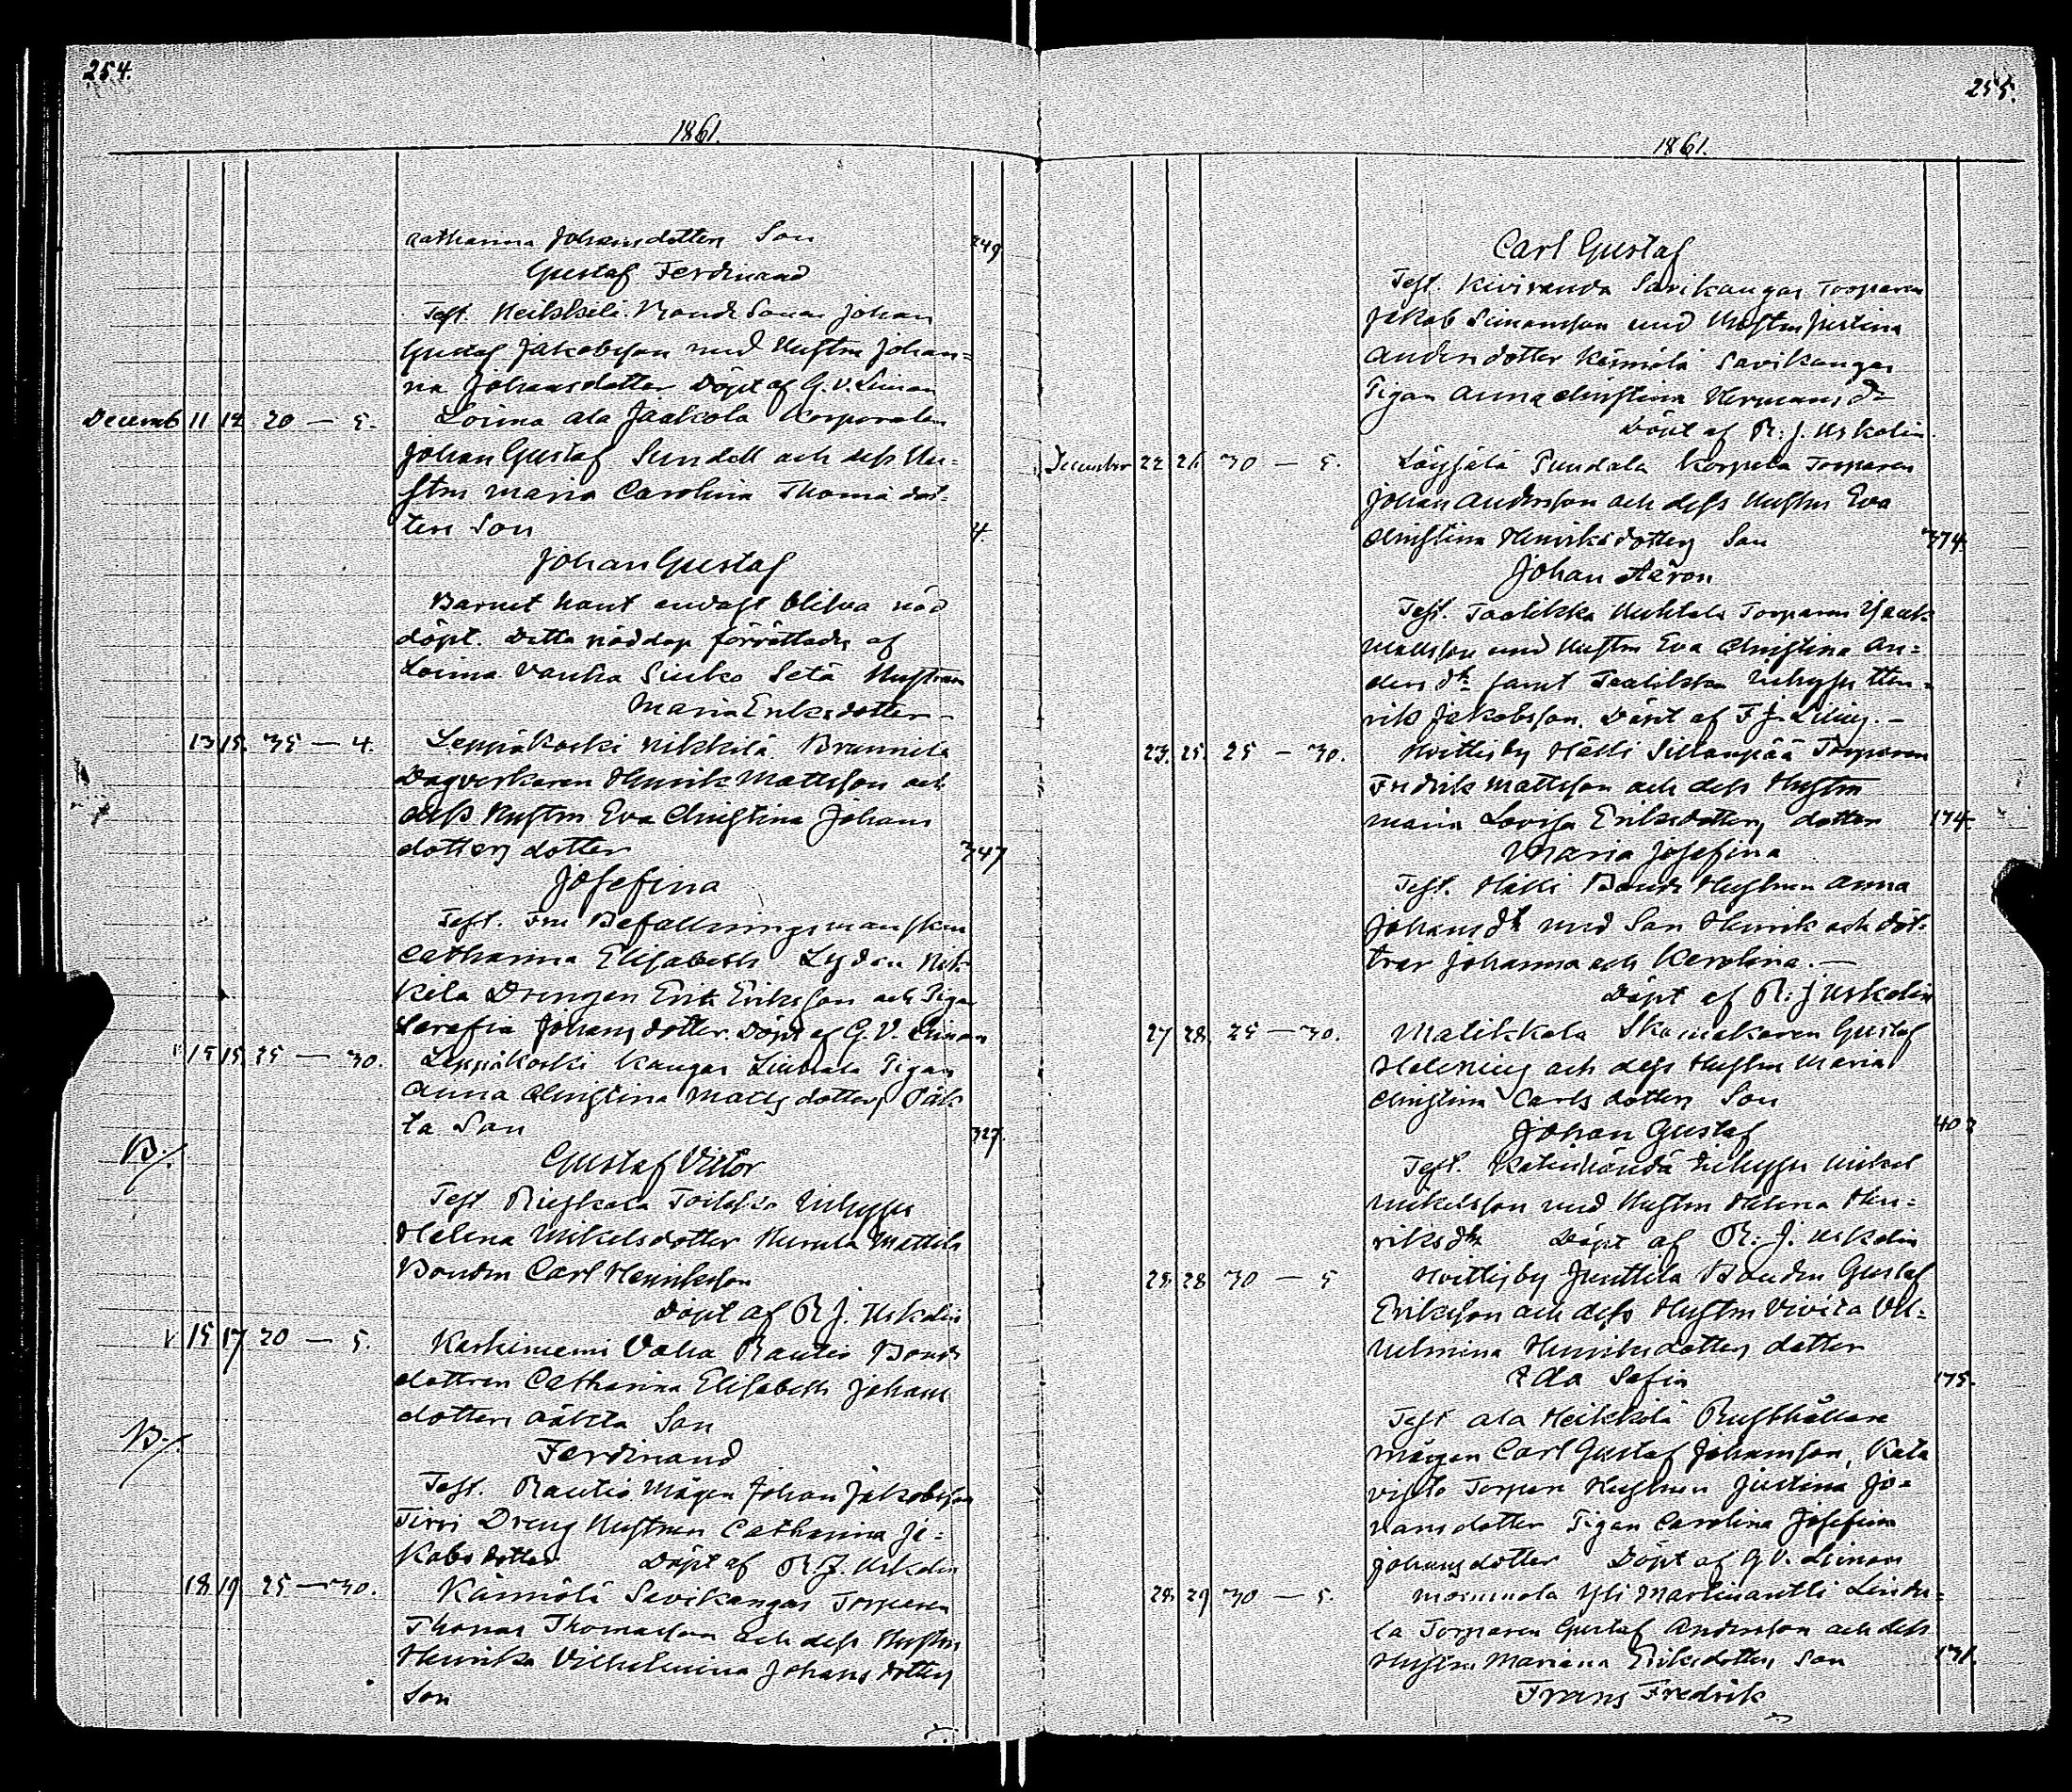 254.
1861.
Catharina Johansdotters Son 349
Gustaf Ferdinand
Test. Heikkilä Bonde Sonen Johan
Gustaf Jakobsson med Hustru Johan=
na Johansdotter Döpt af G. V. Liinan
Decemb 11 14 20 — 5. Loima ala Jaakola Korporalen
Johan Gustaf Sundell och dess Hu=
stru Maria Carolina Thomædot-
ters Son 4.
Johan Gustaf
Barnet hant endast blifva nöd
döpt. Detta nöddop förrättades af
Loima Vanha Seta Hustrun
Maria Eriksdotter
13 15. 35 — 4. Leppäkoski Nikkilä Brunnila
Dagverkaren Henrik Mattsson och
dess Hustru Eva Christina Johans
dotters dotter 347
Josefina
Test. Fru Befallningsmanskan
Catharina Elisabeth Lydén Nik-
kilä Drengen Erik Eriksson och Pigan
Serafia Johansdotter. Döpt af G. V. Liinan
15 15. 25 — 30. Leppäkoski Kangas Pigan
Anna Christina Mattsdotters Oäk
ta Son 327.
B./.
Gustaf Victor
Test Inhyses
Helena Mikelsdotter Mattila
Bonden Carl Henriksson
Döpt af R. J. Uskelin
15 17 20 — 5. Karhiniemi Vaha Rautio Bonde
dottren Catharina Elisabeth Johans
dotters oäkta Son
B./.
Ferdinand
Test. Rautio Mågen Johan Jakobsson
Tirri Dreng Hustrun Catharina Ja=
kobsdotter Döpt af R. J. Uskelin
18 19. 25 — 30. Kännölä Savikangas Torparen
Thomas Thomasson och dess Hustru
Henrika Vilhelmina Johansdotters
Son
255.
1861.
Carl Gustaf
Test. Kiviranda Savikangas Torparen
Jakob Simonsson med Hustru Justina
Andersdotter Kännölä Savikangas
Pigan Anna Christina Hermansdr
Döpt af R. J. Uskelin.
December 22 26 30 — 5. Korpela Torparen
Johan Andersson och dess Hustru Eva
Christina Henriksdotters Son 374.
Johan Aäron
Test. Huhtala Torparen Isaak
Mattsson med Hustru Eva Christina An=
dersdr samt Inhyses Hen-
rik Jakobsson. Döpt af F. J. Lilius. —
23. 25. 25 — 30. Hvittisby Hälli Sillanpää Torparen
Fredrik Mattsson och dess Hustru
Maria Lovisa Eriksdotters dotter 174.
Maria Josefina
Test. Hälli Bonde Hustrun Anna
Johansdr med Son Henrik och döt-
trar Johanna och Karolina. —
Döpt af R. J. Uskelin
27 28. 25 — 30. Mälikkälä Skomakaren Gustaf
Helenius och dess Hustru Maria
Christina Carlsdotters Son
Johan Gustaf 403
Test. Inhyses Mikel
Mikelsson med Hustru Helena Hen=
riksdr Döpt af R. J. Uskelin
25. 28 30 — 5 Hvittisby Junttila Bonden Gustaf
Eriksson och dess Hustru Vivica Vil=
helmina Henriksdotters dotter
Ida Sofia 175.
Test ala Heikkilä Rusthållare
Mågen Carl Gustaf Johansson, Kata
visto Torpare Hustrun Justina Jo=
hansdotter Pigan Carolina Josefina
Johansdotter Döpt af G. V. Liinan
28. 29 30 — 5. Mommola Yli Martinantti Lindu=
la Torparen Gustaf Andersson och dess
Hustru Mariana Eriksdotters Son 131.
Frans Fredrik